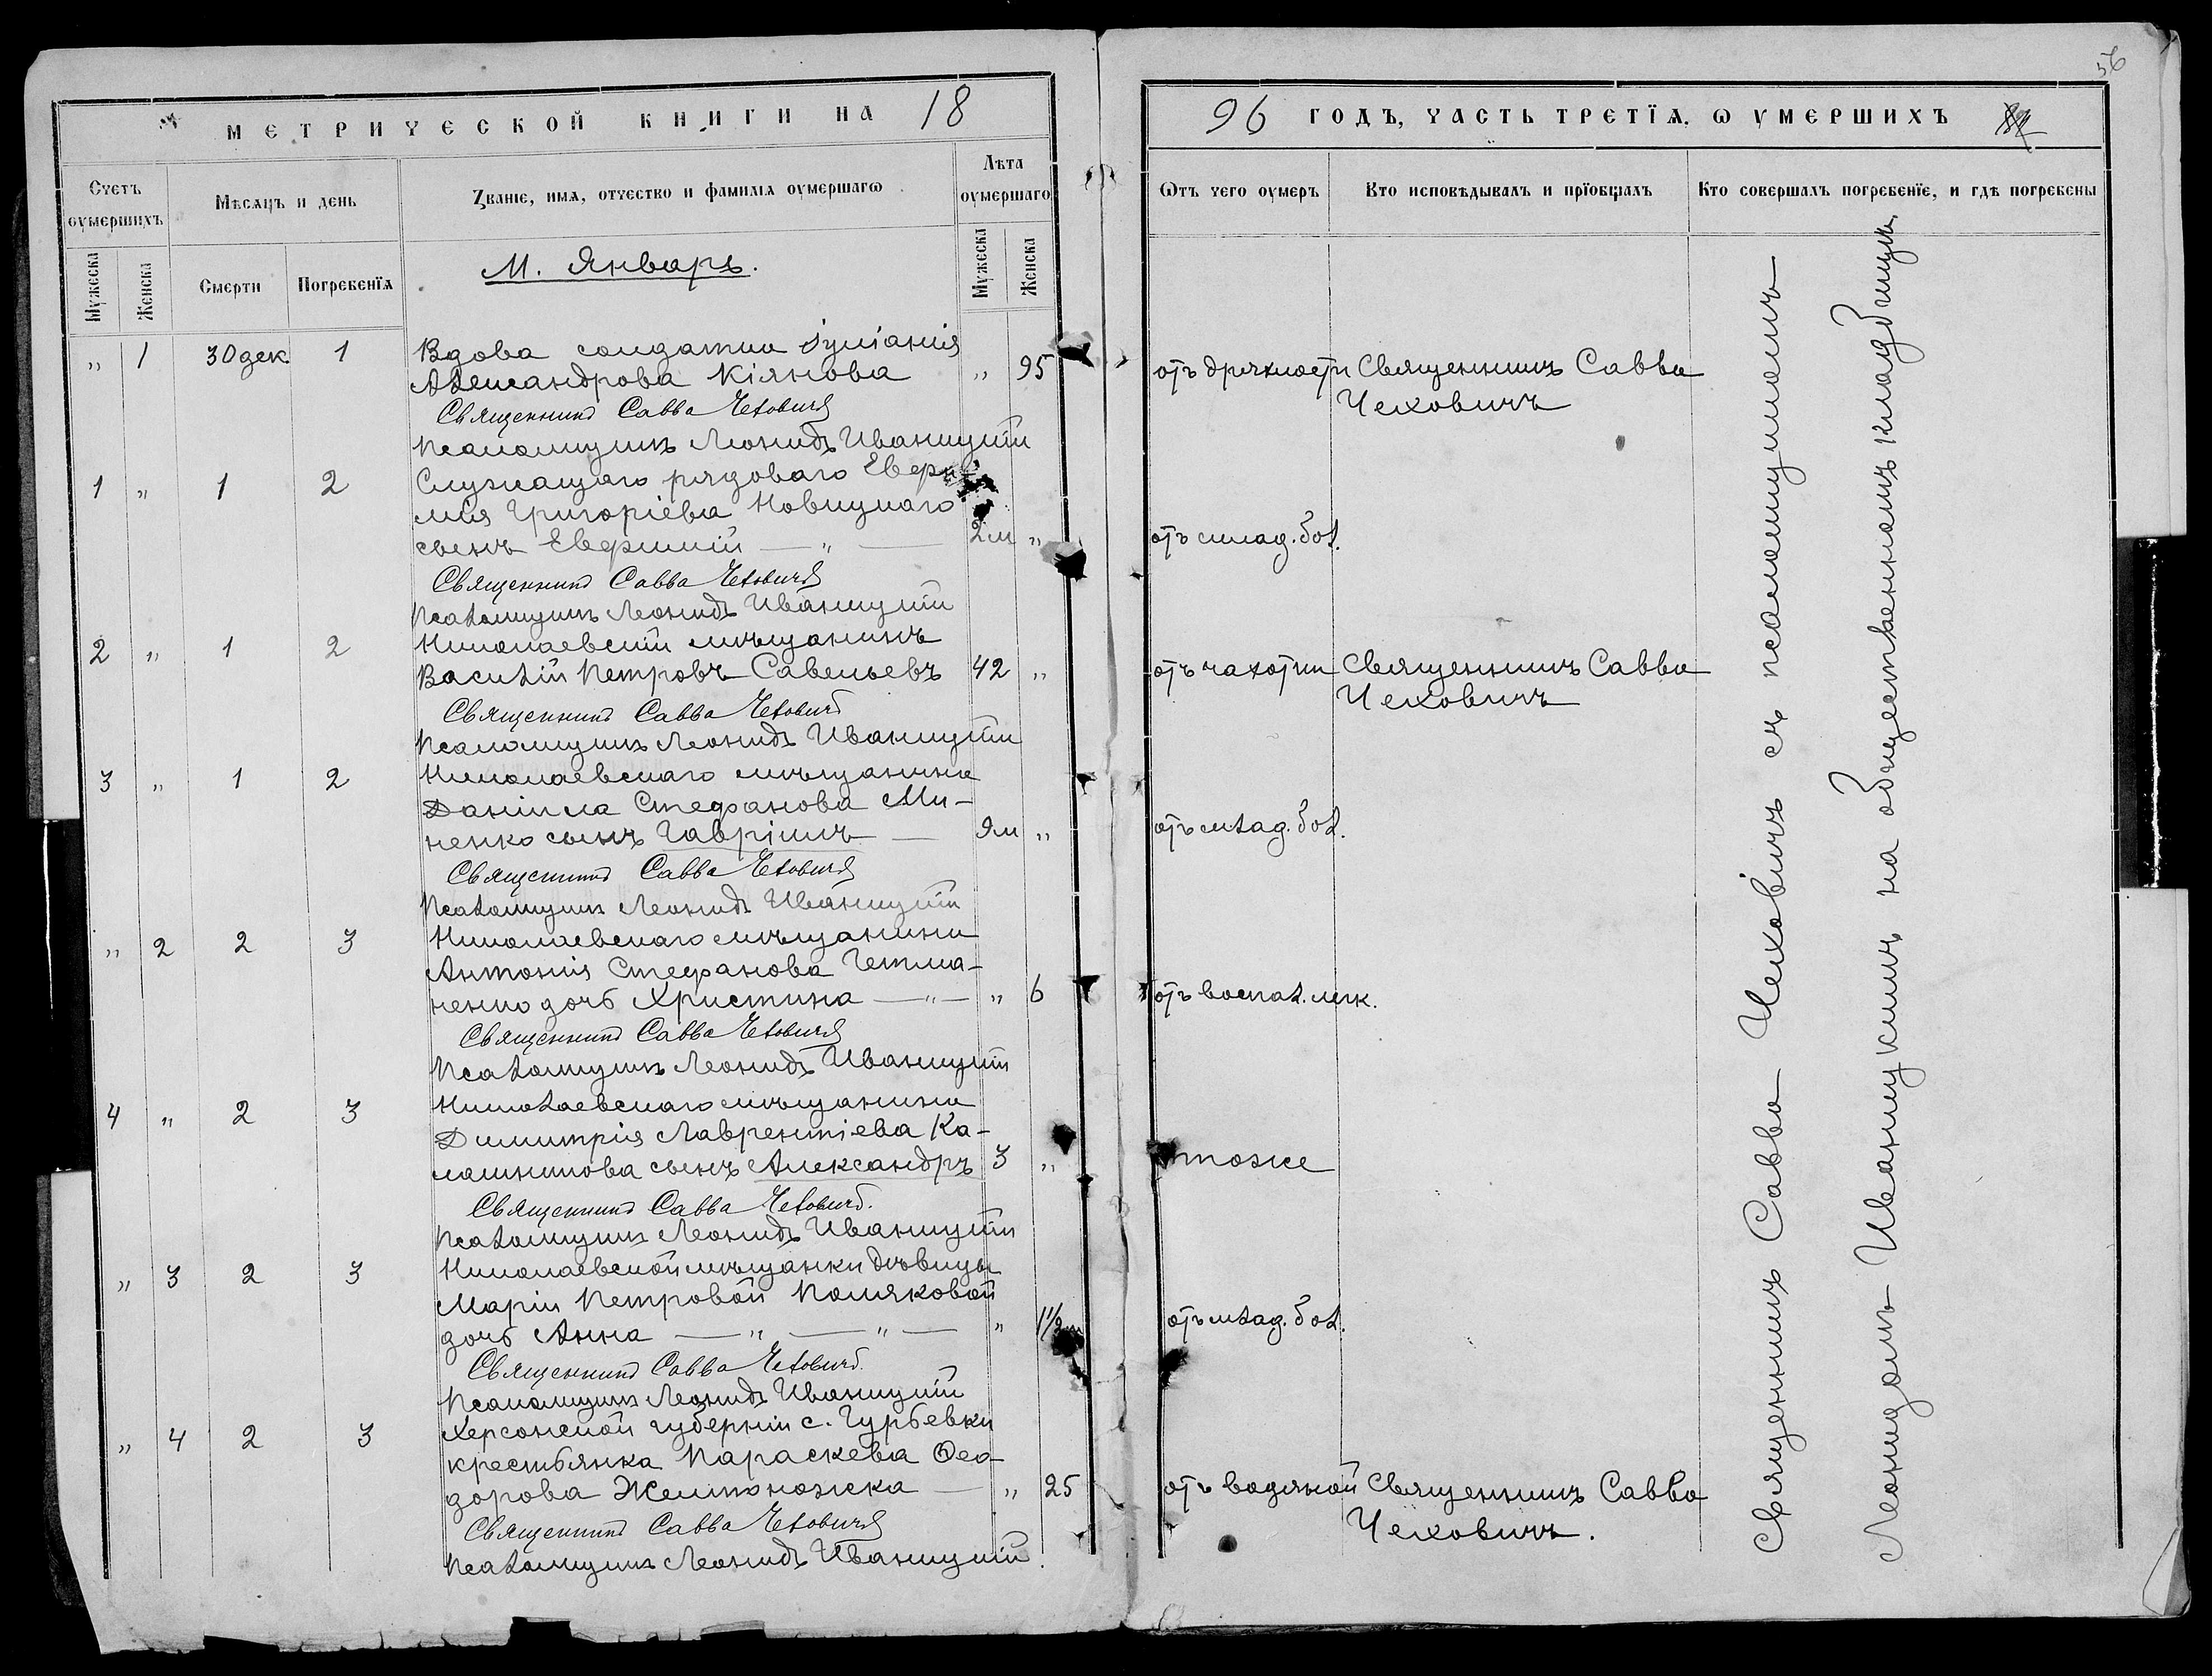 56
МЕТРИЧЕСКОЙ КНИГИ НА 18
96 ГОДЪ, ЧАСТЬ ТРЕТІѦ, Ѡ ѸМЕРШИХЪ
Счетъ ѹмершихъ
Мѣсѧцъ и день
Ꙁваніе, имѧ, отчество и фамиліѧ ѹмершагѡ
Лѣта ѹмершаго
Ѿтъ чего ѹмеръ
Кто исповѣдывалъ и прїобщалъ
Кто совершалъ погребенїе, и гдѣ погребены
Мужеска
Женска
Смерти
Погребенїѧ
Мужеска
Женска
М. Январь.
„ 1 30 дек. 1 Вдова солдатки Іуліанія
Александрова Кіянова „ 95 отъ дряхлости Священникъ Савва
Чеховичъ
Священникъ Савва Чеховичъ
Псаломщикъ Леонидъ Иваницкій
1 „ 1 2 Служащаго рядоваго Евфи-
мія Григоріева Новицкаго
сынъ Евфимій — „ — 2 м „ отъ млад. бол.
Священникъ Савва Чеховичъ
Псаломщикъ Леонидъ Иваницкій
2 „ 1 2 Николаевскій мѣщанинъ
Василій Петровъ Савельевъ 42 „ отъ чахотки Священникъ Савва
Чеховичъ
Священникъ Савва Чеховичъ
Псаломщикъ Леонидъ Иваницкій
3 „ 1 2 Николаевскаго мѣщанина
Даніила Стефанова Ми-
ненко сынъ Гавріилъ — 9 м „ отъ млад. бол.
Священникъ Савва Чеховичъ
Псаломщикъ Леонидъ Иваницкій
„ 2 2 3 Николаевскаго мѣщанина
Антонія Стефанова Гетма-
ненко дочь Христина — „ — „ 6 отъ воспал. легк.
Священникъ Савва Чеховичъ
Псаломщикъ Леонидъ Иваницкій
4 „ 2 3 Николаевскаго мѣщанина
Димитрія Лаврентіева Ка-
лашникова сынъ Александръ 3 „ тоже
Священникъ Савва Чеховичъ.
Псаломщикъ Леонидъ Иваницкій
„ 3 2 3 Николаевской мѣщанки дѣвицы
Маріи Петровой Поляковой
дочь Анна — „ — „ — „ 1 1/2 м отъ млад. бол.
Священникъ Савва Чеховичъ.
Псаломщикъ Леонидъ Иваницкій
„ 4 2 3 Херсонской губерніи с. Гурьевки
крестьянка Параскева Ѳео-
дорова Желтоножска — „ 25 отъ водяной Священникъ Савва
Чеховичъ.
Священникъ Савва Чеховичъ
Псаломщикъ Леонидъ Иваницкій.
Священникъ Савва Чеховичъ съ псаломщикомъ
Леонидомъ Иваницкимъ на общественномъ кладбищѣ